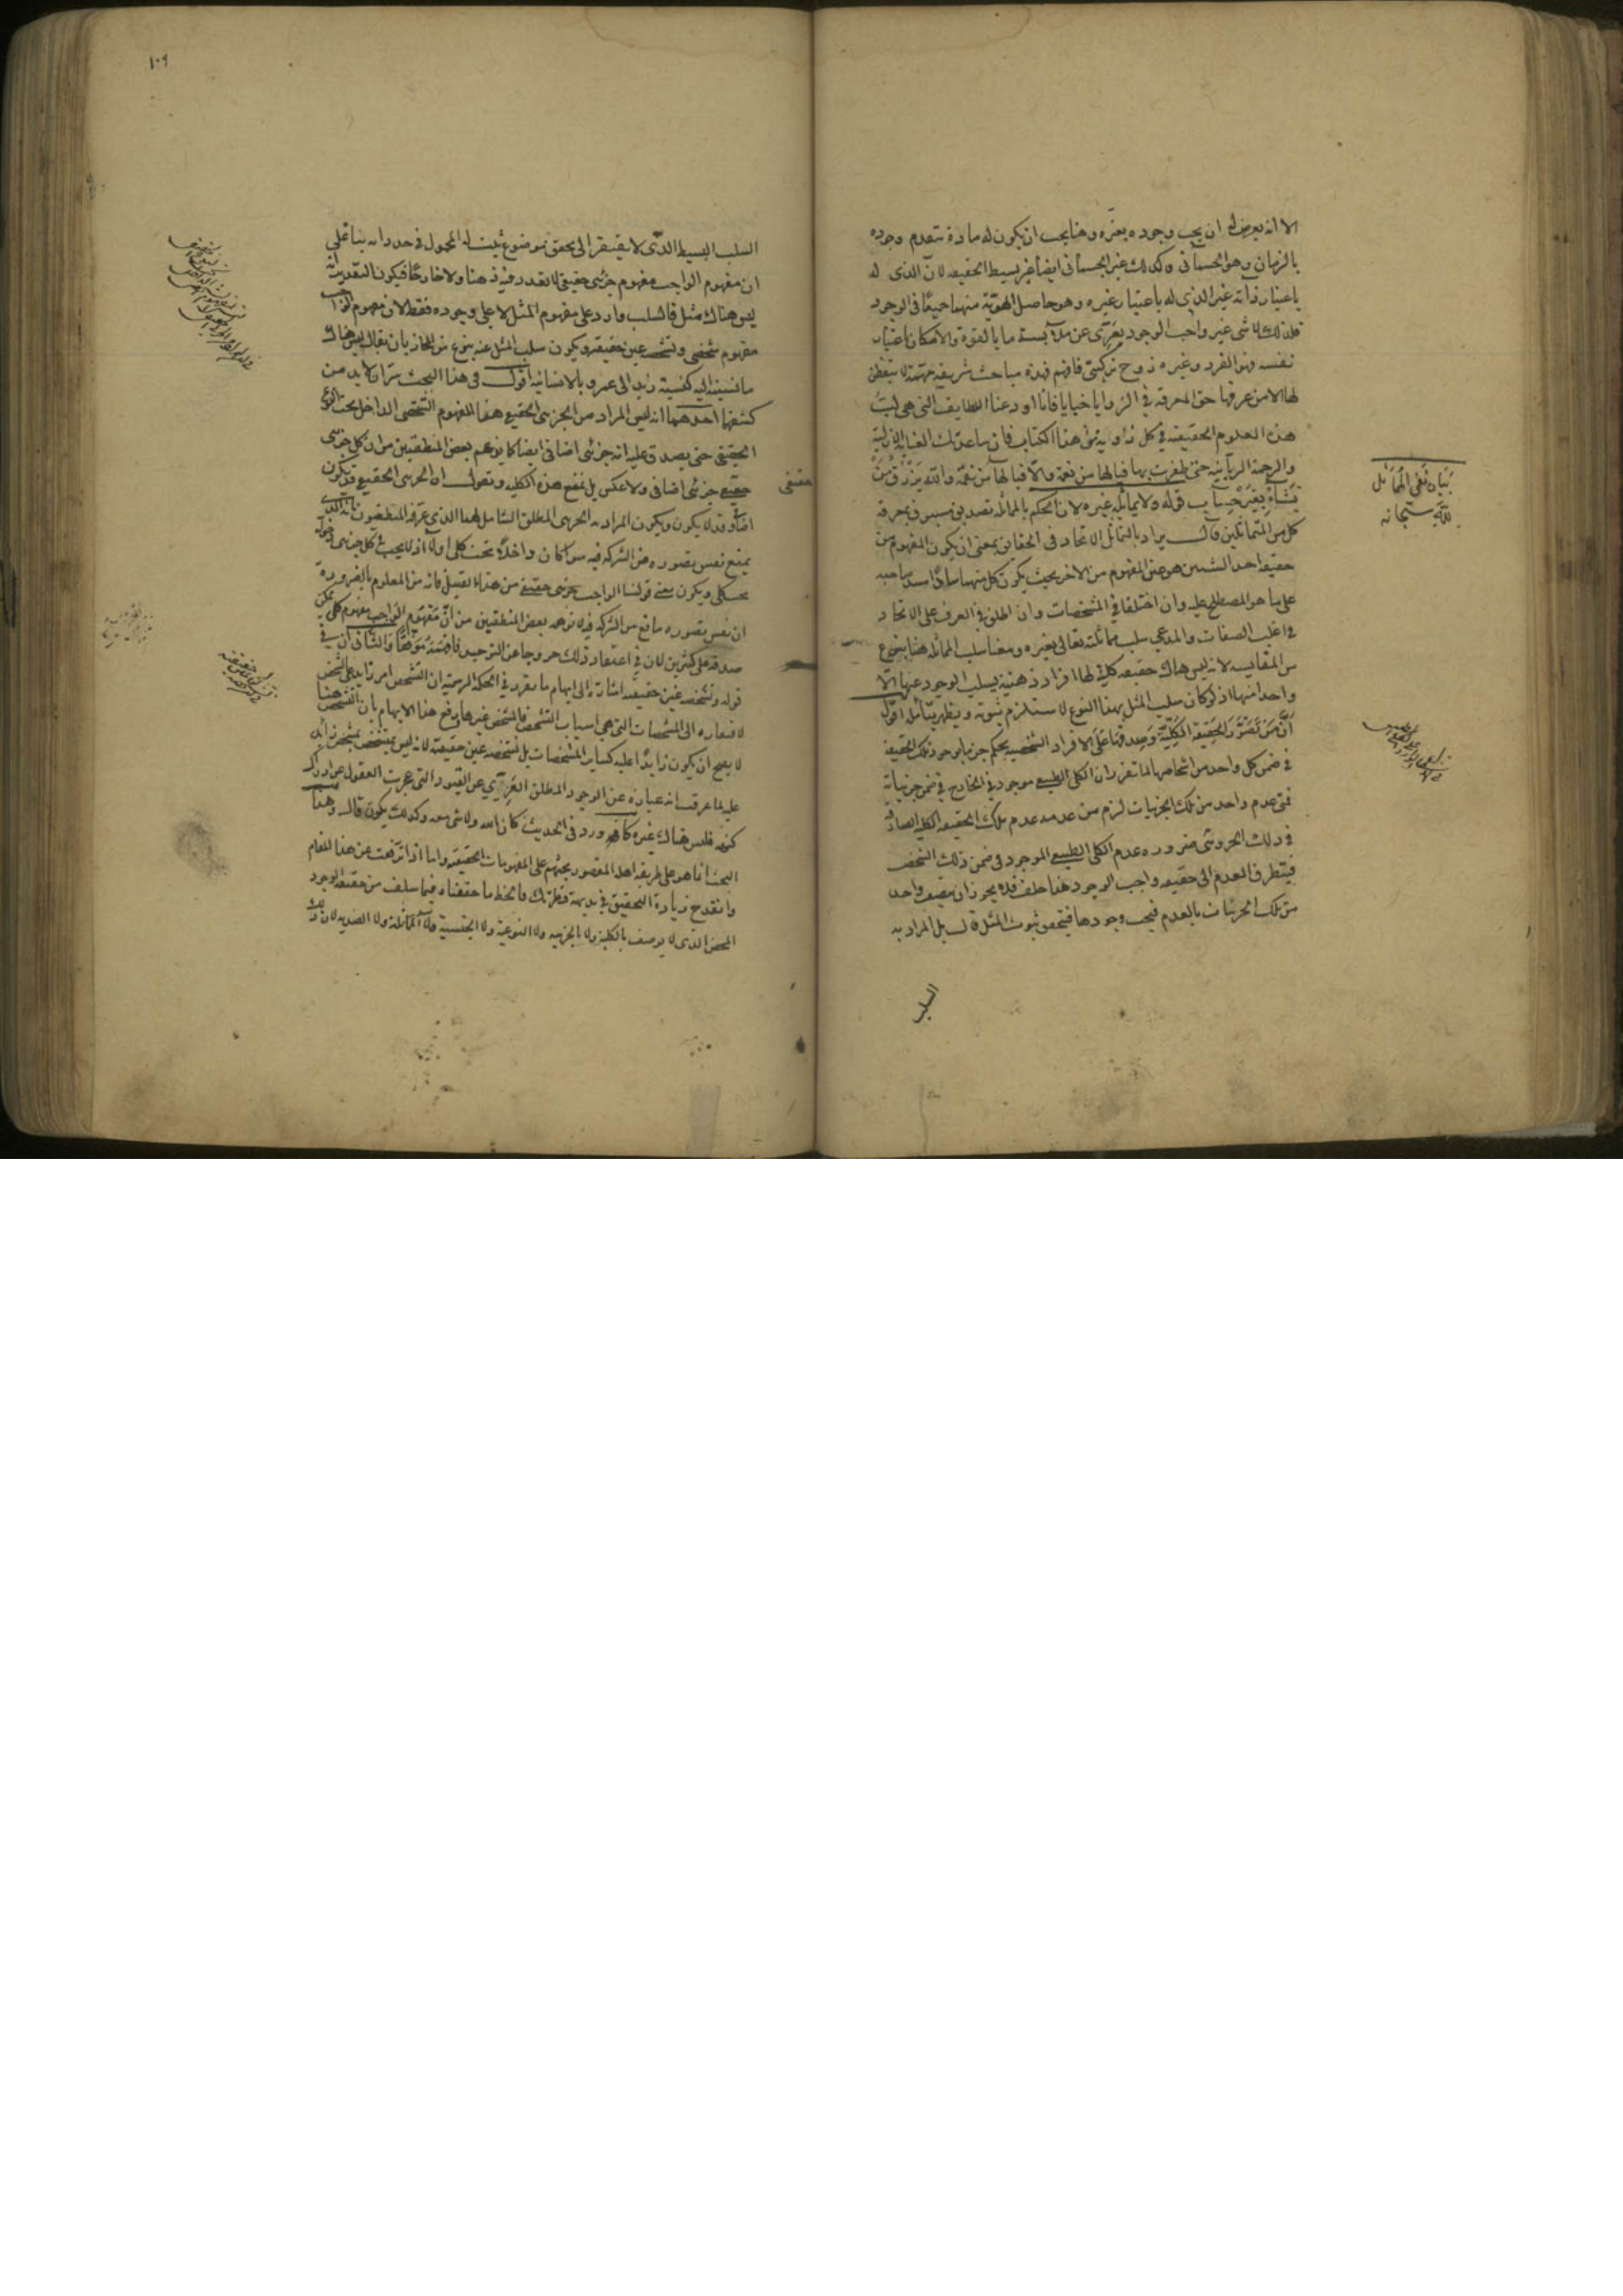 الا انه يعرض له ان يجب وجوده بغيره وهنا يجب ان يكون له مادة تتقدم وجوده
بالزمان وهو الجسمانى وكذلك غير الجسمانى ايضا غير بسيط الحقيقه لان الذى له
باعتبار ذاته غير الذى له باعتبار غيره وهو حاصل الهوية منهما جميعا فى الوجود
فلذلك لا شى غير واجب الوجود يعرى عن ملابسة ما بالقوة والامكان باعتبار
نفسه وهو الفرد وغيره زوج تركيبى فافهم فهذه مباحث شريفه لا يتفطن
لها الا من عرفها حق المعرفة فى الزوايا خبايا فانا اودعنا اللطايف التى هى لب
هذه العلوم الحقيقيه فى كل زاوية من هذا الكتاب فان ساعدتك العناية الازلية
والرحمة الربانية حتى ظفرت بها فيالها من نعمة والا فيالها من نقمة والله يرزق من
يشاء بغير حساب قوله ولا يماثله غيره لان الحكم بالمماثله تصديق مسبوق بمعرفة
كل من المتماثلين قال يراد بالتماثل الاتحاد فى الحقايق بمعنى ان يكون المفهوم من
حقيقة احد الشيئين هو عين المفهوم من الاخر بحيث يكون كل منهما سادا مسد صاحبه
على ما هو المصطلح عليه وان اختلفا فى المشخصات وان اطلق فى العرف على الاتحاد
فى اغلب الصفات والمدعى سلب مماثلته تعالى لغيره ومعنا سلب المماثله هنا بنوع
من المقايسه لانه ليس هناك حقيقه كلية لها افراد ذهنية يسلب الوجود عنها الا
واحدا منها اذ لو كان سلب المثل بهذا النوع لاستلزم ثبوته ويظهر بتامل اقول
ان من تصور الحقيقة الكلية وصدقها على الافراد الشخصيه يحكم جزما بوجود تلك الحقيقة
فى ضمن كل واحد من اشخاصها لما تقرر ان الكلى الطبيعى موجود فى الخارج فى ضمن جزئياته
فمتى عدم واحد من تلك الجزئيات لزم من عدمه عدم تلك الحقيقه الكليه الصادقة
فى ذلك الجزوى ضرورة عدم الكلى الطبيعى الموجود فى ضمن ذلك الشخص
فيتطرق العدم الى حقيقه واجب الوجود هذا خلف فلا يجوز ان يتصف واحد
من تلك الجزئيات بالعدم فيجب وجودها فيتحقق ثبوت المثل قال بل المراد به
السلب
بيان نفى المماثل
لله سبحانه
١٠٩
السلب البسيط الذى لا يفتقر الى تحقق موضوع يثبت له المحمول فى حد ذاته بناء على
ان مفهوم الواجب مفهوم جزئى حقيقى لا تعدد فيه ذهنا ولا خارجا فيكون التقدير انه
ليس هناك مثل فالسلب وارد على مفهوم المثل لا على وجوده فقط لان مفهوم الواجب
مفهوم شخصى وتشخصه عين حقيقته ويكون سلب المثل عنه بنوع من المجاز بان يقال ليس هناك
ما نسبته اليه كنسبة زيد الى عمرو بالانسانيه اقول فى هذا البحث سران لا بد من
كشفهما احدهما انه ليس المراد من الجزئى الحقيقى هذا المفهوم الشخصى الداخل تحت النوع
الحقيقى حتى يصدق عليه انه جزئى اضافى ايضا كما توهم بعض المنطقيين من ان كل جزئى
حقيقى جزئى اضافى ولا عكس بل نمنع هذه الكليه ونقول ان الجزئى الحقيقى قد يكون
اضافيا وقد لا يكون ويكون المراد به الجزئى المطلق الشامل لهما الذى عرفه المنطقيون بانه الذى
يمنع نفس تصوره من الشركه فيه سوا كان داخلا تحت كلى اولا اذ لا يجب فى كل جزئى دخوله
تحت كلى ويكون معنى قولنا الواجب جزئى حقيقى من هذا القبيل فانه من المعلوم بالضرورة
ان نفس تصوره مانع من الشركه فيه لا توهمه بعض المنطقيين من ان مفهوم الواجب مفهوم كلى يمكن
صدقه على كثيرين لان فى اعتقاد ذلك خروجا عن التوحيد والثانى ان فى
قوله وتشخصه عين حقيقته اشارة الى ايهام ما تقرر فى الحكمة الرسمية ان التشخص امر زايد على الشخص
لافتقاره الى المشخصات التى هى اسباب التشخص فالمشخص غيرها ورفع هذا الايهام بان التشخص هنا
لا يصح ان يكون زايدا عليه كساير المشخصات بل تشخصه عين حقيقته لانه ليس بمتشخص بمشخص زايد
عليه لما عرفت انه عبارة عن الوجود المطلق العرى عن القيود التى عجزت العقول عن ادراك
كنهه فليس هناك غيره كما ورد فى الحديث كان الله ولا شى معه وكذلك يكون قال وهذا
البحث انما هو على طريقه اهل المقصور بحثهم على المفهومات الحقيقيه واما اذا ترفعت عن هذا المقام
وانقدح زيادة التحقيق فى بديهة فطرتك فالحظ ما حققناه فيما سلف من حقيقه الوجود
المحض الذى لا يوصف بالكلية ولا بالجزئيه ولا النوعية ولا الجنسية ولا المماثلة ولا الضديه لان ذلك
حقيقى